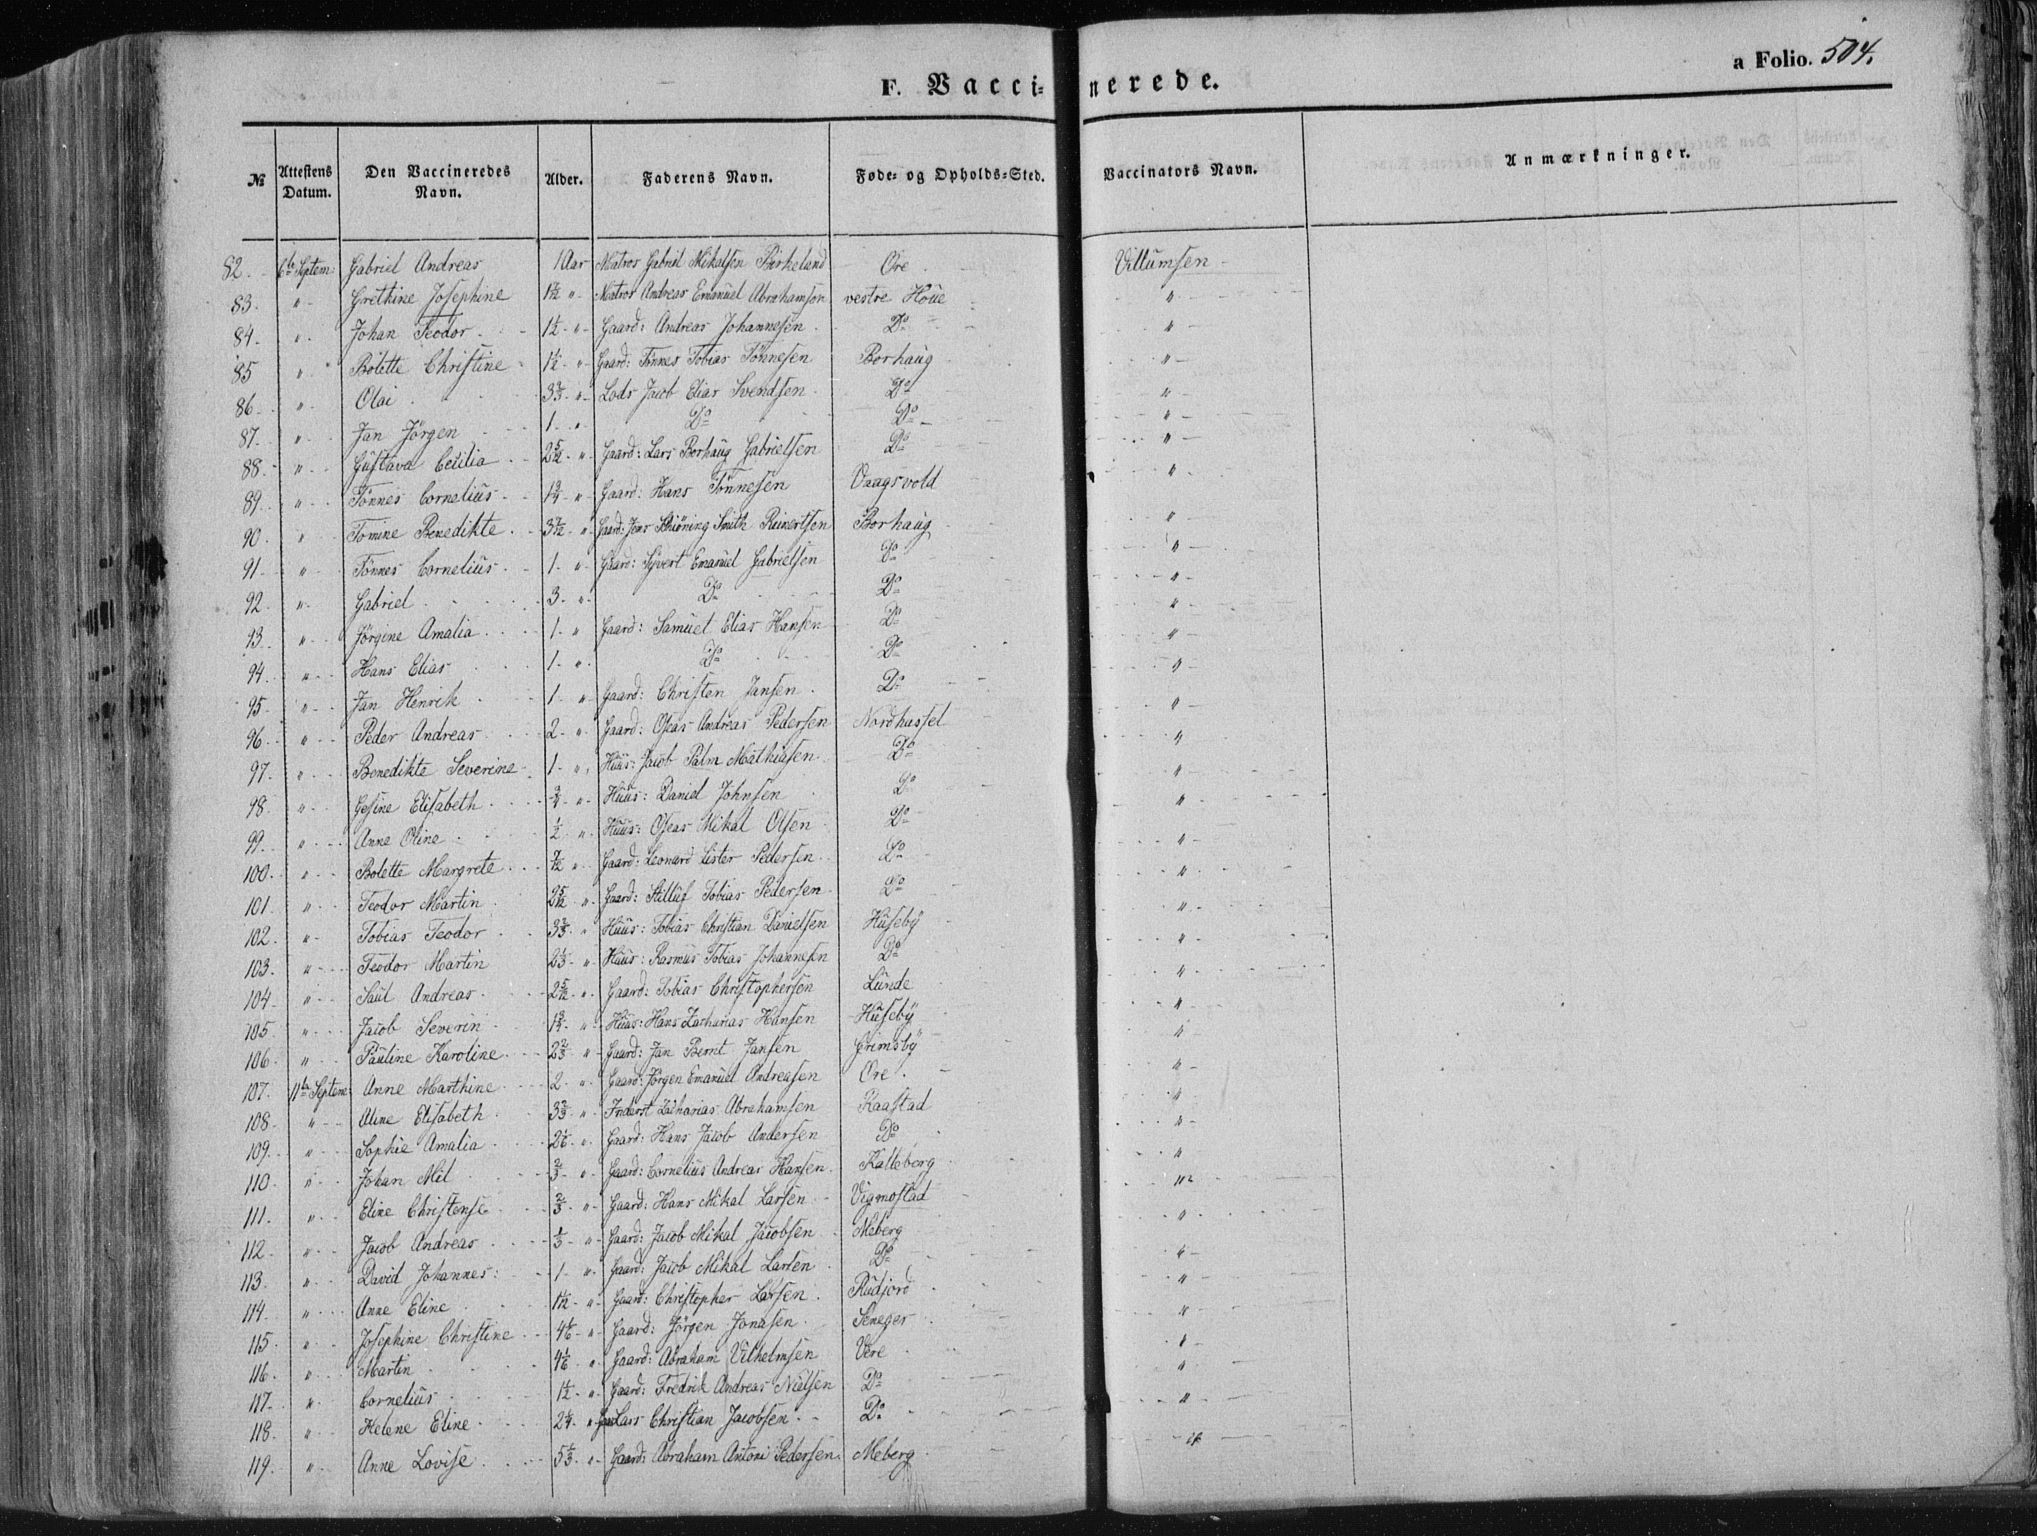 a Folio. 504.
F. Vaccinerede.
№ Attestens Datum. Den Vaccineredes Navn. Alder. Faderens Navn. Føde- og Opholds-Sted. Vaccinators Navn. Anmærkninger.
82. 6te Septem: Gabriel Andreas 1 Aar Matros Gabriel Mikalsen Birkeland Ore Villumsen
83. " Grethine Josephine 1½ " Matros Andreas Emanuel Abrahamson vestre Houe "
84. " Johan Teodor 1½ " Gaard: Andreas Johannesen Do "
85 " Bolette Christine 1½ " Gaard: Tönnes Tobias Tönnesen Borhaug "
86. " Olai 3⅔ " Lods Jacob Elias Svendsen Do "
87. " Jan Jörgen 1 " Do Do "
88. " Gustava Cecilia 2 5/12 " Gaard: Lars Borhaug Gabrielsen Do "
89. " Tönnes Cornelius 1¾ " Gaard: Hans Tönnesen Vaagsvold "
90. " Tomine Benedikte 3 7/12 " Gaard: Jens Schiöning Smith Reinertsen Borhaug "
91. " Tönnes Cornelius 1 " Gaard: Syvert Emanuel Gabrielsen Do "
92. " Gabriel 3 " Do Do "
93. " Jörgine Amalia 1 " Gaard: Samuel Elias Hansen Do "
94. " Hans Elias 1 " Do Do "
95. " Jan Henrik 1 " Gaard: Christen Jansen Do "
96. " Peder Andreas 2 " Gaard: Oseas Andreas Pedersen Nordhassel "
97. " Benedikte Severine 1 " Huus: Jacob Palm Mathiasen Do "
98. " Gesine Elisabeth ¾ " Huus: Daniel Johnsen Do "
99. " Anne Oline ½ " Huus: Oseas Mikal Olsen Do "
100. " Bolette Margrete 7/12 " Gaard: Leonard Lister Pedersen Do "
101. " Teodor Martin 2 5/12 " Gaard: Stilluf Tobias Pedersen Do "
102. " Tobias Teodor 3⅔ " Huus: Tobias Christian Danielsen Huseby "
103. " Teodor Martin 2⅓ " Huus: Rasmus Tobias Johannesen Do "
104. " Paul Andreas 2 5/12 " Gaard: Tobias Christophersen Lunde "
105. " Jacob Severin 1¾ " Huus: Hans Zacharias Hansen Huseby "
106. " Pauline Karoline 2⅔ " Gaard: Jan Bernt Jansen Grimsby "
107. 11te Septem: Anne Marthine 2 " Gaard: Jörgen Emanuel Andreasen Ore "
108. " Aline Elisabeth 3⅔ " Inderst Zacharias Abrahamsen Kaastad "
109. " Sophie Amalia 2⅙ " Gaard: Hans Jacob Andersen Do "
110. " Johan Mil ⅔ " Gaard: Cornelius Andreas Hansen Kalleberg "
111. " Eline Christense ⅔ " Gaard: Hans Mikal Larsen Vigmostad "
112. " Jacob Andreas ⅓ " Gaard: Jacob Mikal Jacobsen Meberg "
113. " David Johannes: 1 " Gaard: Jacob Mikal Larsen Do "
114. " Anne Eline 1½ " Gaard: Christopher Larsen Rudjord "
115. " Josephine Christine 4⅙ " Gaard: Jörgen Jonasen Seneger "
116. " Martin 4⅙ " Gaard: Abraham Vilhelmsen Vere "
117. " Cornelius 1½ " Gaard: Fredrik Andreas Nielsen Do "
118. " Helene Eline 2¼ " Lars Christian Jacobsen Do "
119. " Anne Lovise 5⅓ " Gaard: Abraham Antoni Pedersen Meberg "